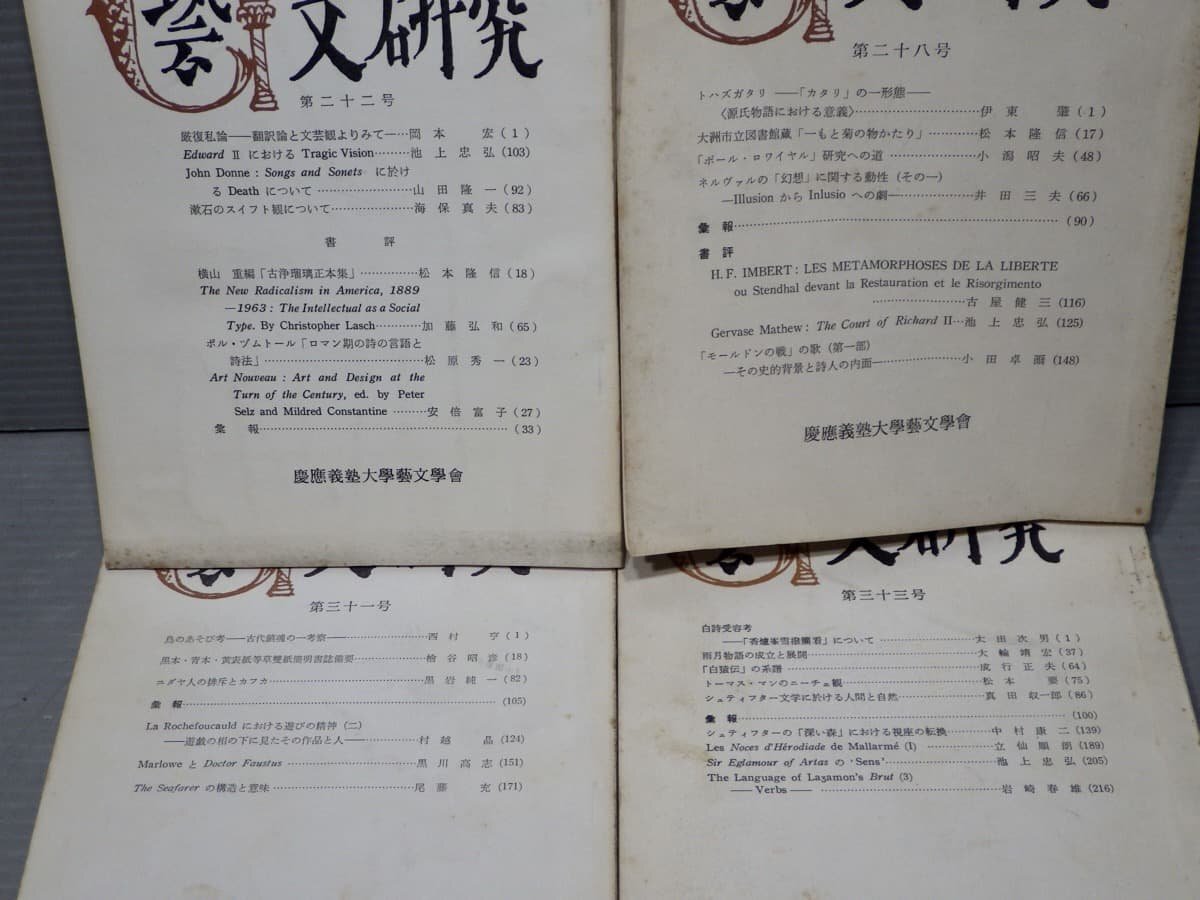 藝文研究
第二十二号
厳復私論――翻訳論と文芸観よりみて―…岡本宏(1)
Edward II における Tragic Vision………池上忠弘(103)
John Donne : Songs and Sonets に於け
る Death について……………………山田隆一(92)
漱石のスイフト観について…………………海保真夫(83)
書評
横山重編「古浄瑠璃正本集」……………松本隆信(18)
The New Radicalism in America, 1889
—1963 : The Intellectual as a Social
Type. By Christopher Lasch…………加藤弘和(65)
ポル・ヅムトール「ロマン期の詩の言語と
詩法」……………………………………松原秀一(23)
Art Nouveau : Art and Design at the
Turn of the Century, ed. by Peter
Selz and Mildred Constantine ………安倍富子(27)
彙報…………………………………………………………(33)
慶應義塾大學藝文學會
第二十八号
トハズガタリ ――「カタリ」の一形態――
〈源氏物語における意義〉……………………………伊東肇(1)
大洲市立図書館蔵「一もと菊の物かたり」…………松本隆信(17)
「ポール・ロワイヤル」研究への道 …………………小潟昭夫(48)
ネルヴァルの「幻想」に関する動性(その一)
―Illusion から Inlusio への劇―…………………井田三夫(66)
彙報……………………………………………………………………(90)
書評
H. F. IMBERT : LES METAMORPHOSES DE LA LIBERTE
ou Stendhal devant la Restauration et le Risorgimento
……………………古屋健三(116)
Gervase Mathew : The Court of Richard II…池上忠弘(125)
「モールドンの戦」の歌(第一部)
―その史的背景と詩人の内面―…………………小田卓爾(148)
慶應義塾大學藝文學會
第三十一号
鳥のあそび考――古代鎮魂の一考察――…………………西村亨(1)
黒本・青本・黄表紙等草双紙簡明書誌備要………………檜谷昭彦(18)
ニグヤ人の排斥とカフカ……………………………………黒岩純一(82)
彙報………………………………………………………………………(105)
La Rochefoucauld における遊びの精神(二)
――遊戯の相の下に見たその作品と人――…………村越晶(124)
Marlowe と Doctor Faustus ……………………………黒川高志(151)
The Seafarer の構造と意味………………………………尾藤充(171)
文研究
第三十三号
白詩受容考
――「香爐峯雪撥簾看」について ……………………太田次男(1)
雨月物語の成立と展開………………………………………大輪靖宏(37)
「白猿伝」の系譜……………………………………………成行正夫(64)
トーマス・マンのニーチェ観………………………………松本要(75)
シュティフター文学に於ける人間と自然…………………真田収一郎(86)
彙報………………………………………………………………………(100)
シュティフターの「深い森」における視座の転換…………中村康二(139)
Les Noces d'Hérodiade de Mallarmé (I) ………………立仙順朗(189)
Sir Eglamour of Artas の 'Sens'…………………………池上忠弘(205)
The Language of Laȝamon's Brut (3)
――Verbs―― …………………………………………岩崎春雄(216)